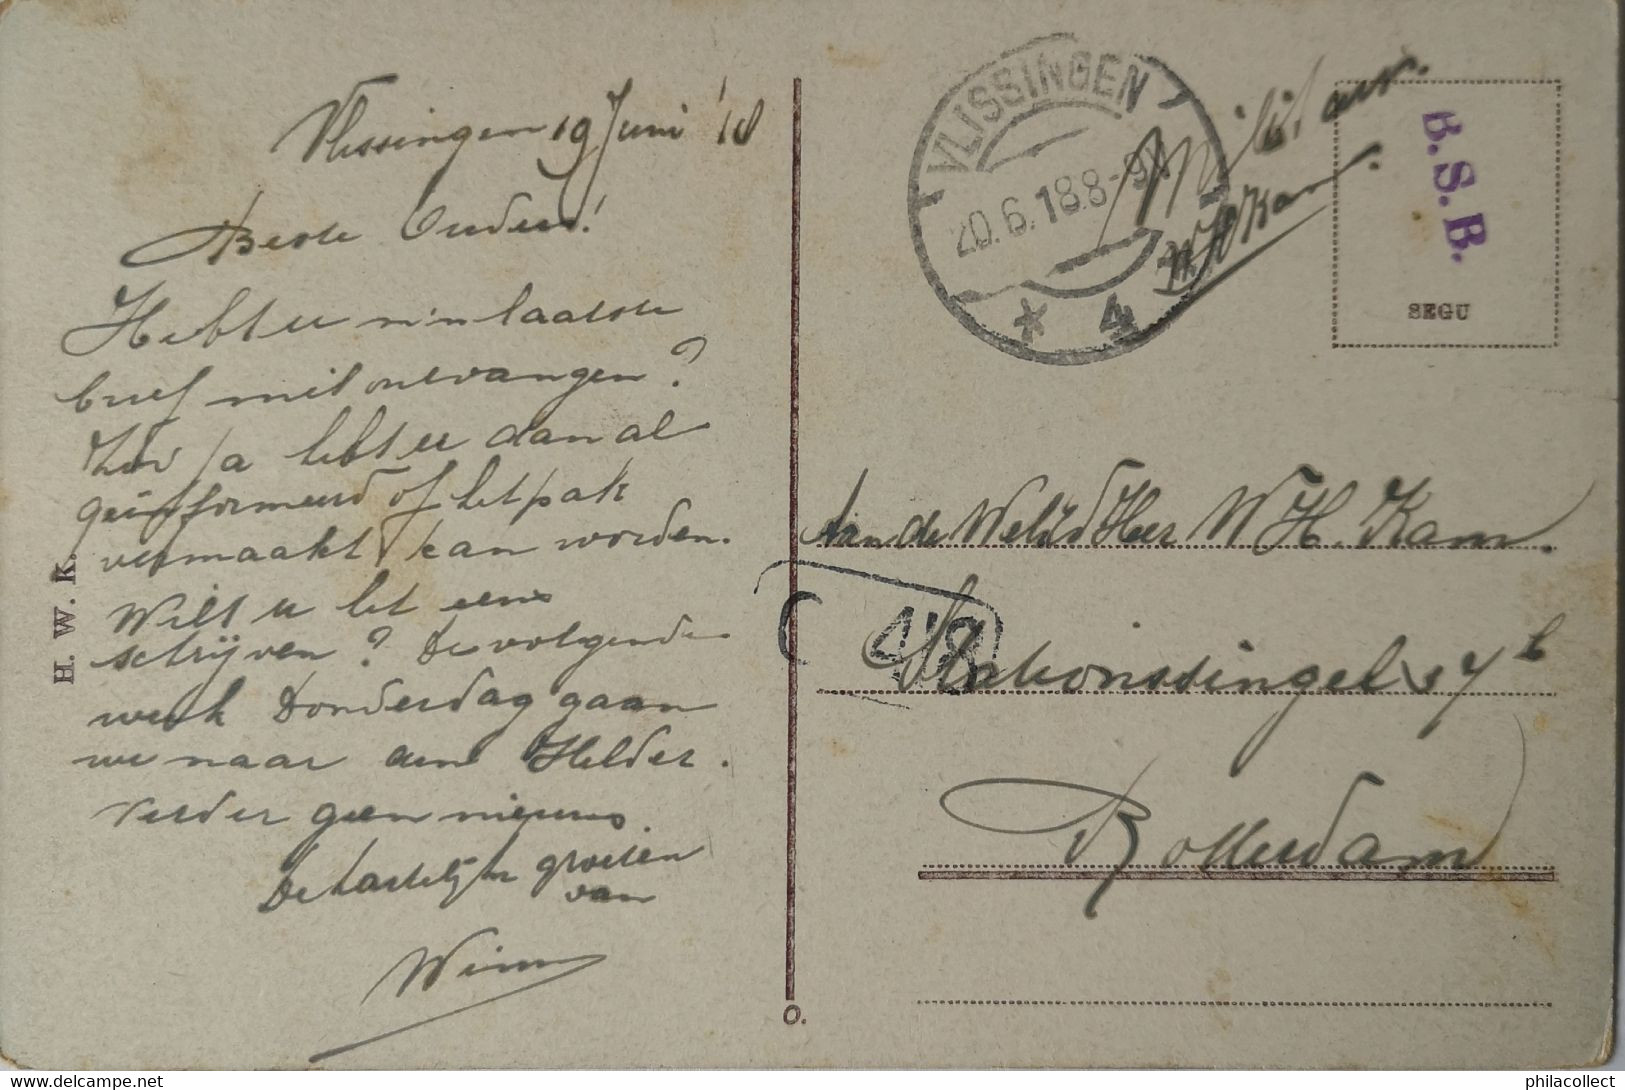 Vlissingen 19 Juni '18
Beste Ouders!
Hebt u m'n laatste
brief niet ontvangen?
Zoo ja hebt u dan al
geïnformeerd of het pak
vermaakt kan worden.
Wilt u het eens
schrijven? De volgende
week Donderdag gaan
we naar den Helder.
Verder geen nieuws.
De hartelijke groeten
van
Wim
H. W. K.
O.
VLISSINGEN
20.6.18 8-9V
* 4
Militair.
W H Kam.
B.S.B.
SEGU
Aan de WelEd Heer W. H. Kam.
418
Stationssingel 37 b
Rotterdam
philacollect